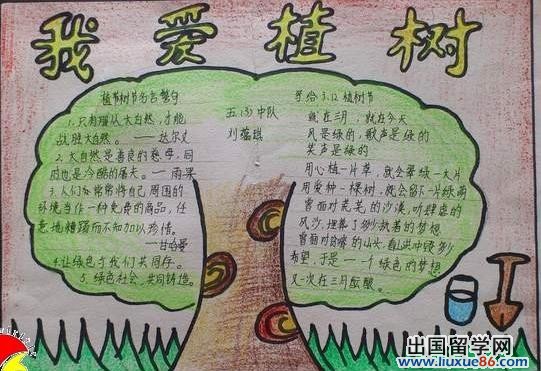 我爱植树
植树节名言警句
1.只有顺从大自然,才能
战胜大自然。 ——达尔文
2.大自然是善良的慈母,同
时也是冷酷的屠夫。——雨果
3.人们常常将自己周围的
环境当作一种免费的商品,任
意地糟蹋而不知加以珍惜。
——甘哈曼
4.让绿色与我们共同存。
5.绿色社会,共同铸造。
五(3)中队
刘蕴琪
写给3.12植树节
就在三月,就在今天
风是绿的,歌声是绿的
笑声是绿的
用心植一片草,就会翠绿一大片
用爱种一棵树,就会留下一片绿荫
曾面对茫茫的沙漠,听肆虐的
风沙,埋葬了多少执著的梦想
曾面对的山头,看洪冲毁多少
希望,于是一个绿色的梦想
又一次在三月酝酿。
出国留学网
www.liuxue86.com